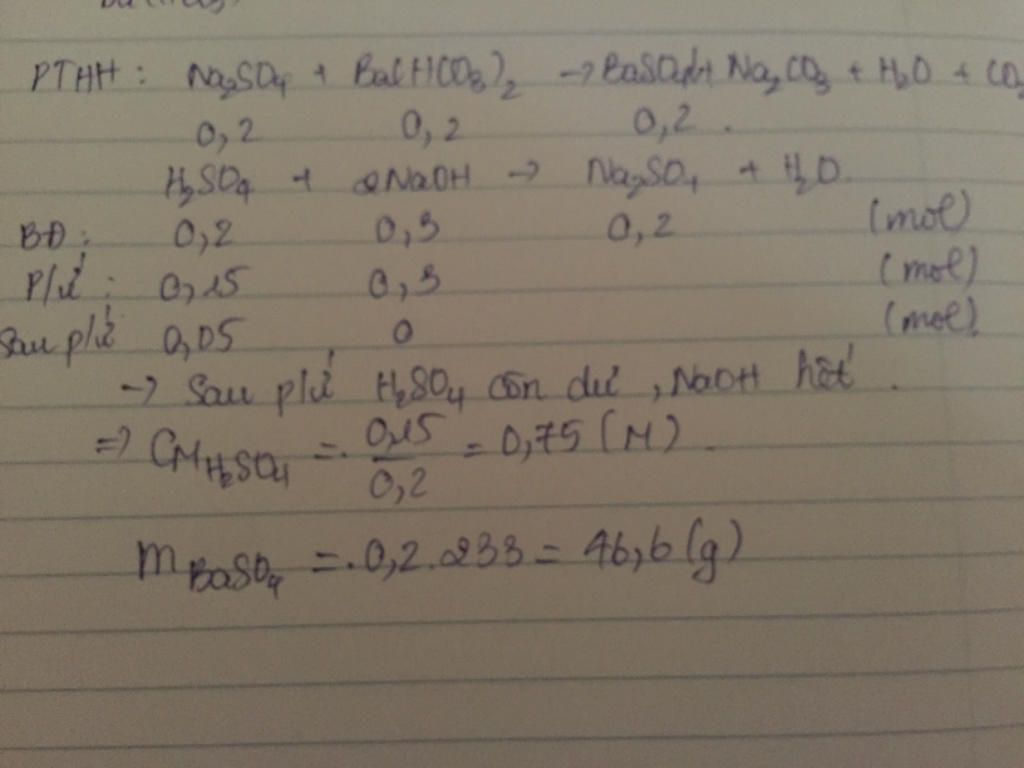 PTHH : Na₂SO₄ + Ba(HCO₃)₂ → BaSO₄↓ + Na₂CO₃ + H₂O + CO₂
0,2 0,2 0,2 .
H₂SO₄ + 2NaOH → Na₂SO₄ + H₂O.
BĐ : 0,2 0,3 0,2 (mol)
P/ứ : 0,15 0,3 (mol)
Sau p/ứ 0,05 0 (mol)
→ Sau p/ứ H₂SO₄ còn dư , NaOH hết .
⇒ CM H₂SO₄ = 0,15/0,2 = 0,75 (M) .
m BaSO₄ = 0,2 . 233 = 46,6 (g)